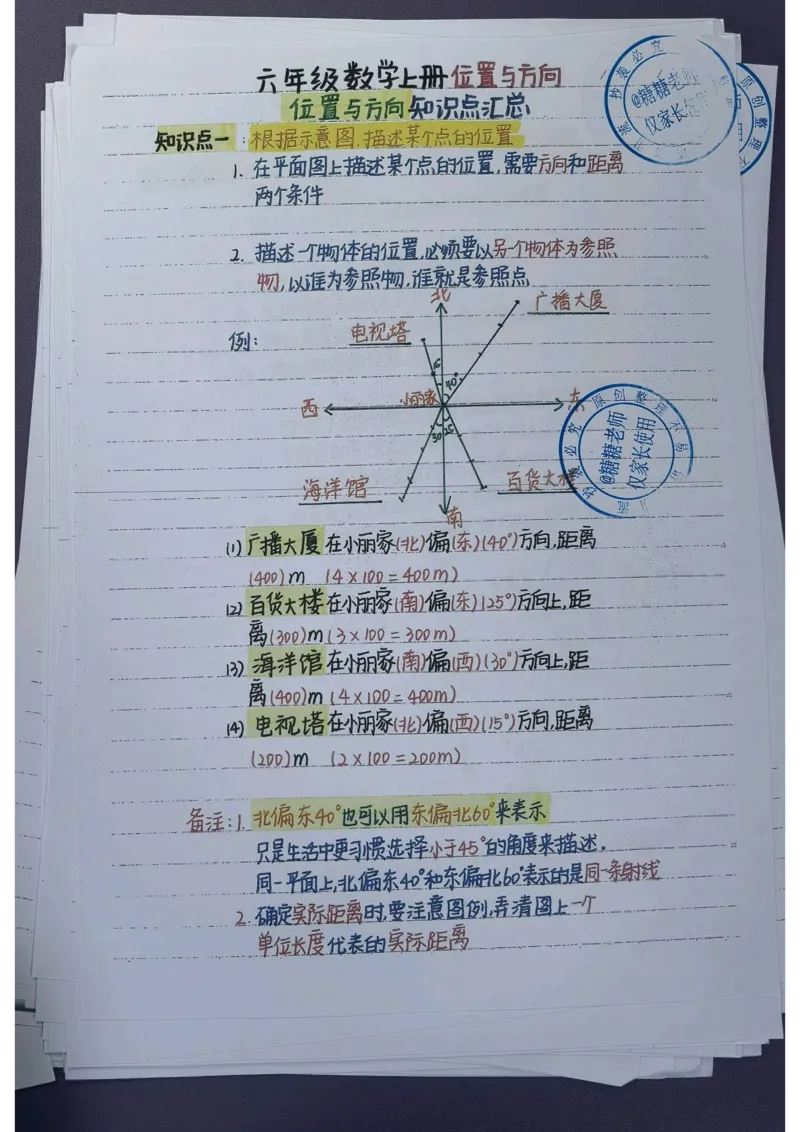 六年级数学上册位置与方向
位置与方向知识点汇总
知识点一:根据示意图.描述某个点的位置
1. 在平面图上描述某个点的位置,需要方向和距离
两个条件
2. 描述一个物体的位置,必须要以另一个物体为参照
物,以谁为参照物,谁就是参照点
例:
北
广播大厦
电视塔
40°
小丽家
西
东
30°
25°
海洋馆
百货大楼
南
(1) 广播大厦在小丽家(北)偏(东)(40°)方向,距离
(400)m (4×100=400m)
(2) 百货大楼在小丽家(南)偏(东)(25°)方向上,距
离(300)m(3×100=300m)
(3) 海洋馆在小丽家(南)偏(西)(30°)方向上,距
离(400)m(4×100=400m)
(4) 电视塔在小丽家(北)偏(西)(15°)方向,距离
(200)m (2×100=200m)
备注:1. 北偏东40°也可以用东偏北60°来表示
只是生活中更习惯选择小于45°的角度来描述。
同一平面上,北偏东40°和东偏北60°表示的是同一条射线
2. 确定实际距离时,要注意图例,弄清图上一个
单位长度代表的实际距离
抄袭必究
@糖糖老师
仅家长使用
原创整理不易
抄袭必究
@糖糖老师
仅家长使用
原创整理